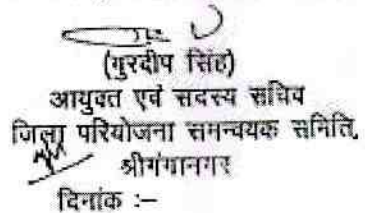 (गुरदीप सिंह)
आयुक्त एवं सदस्य सचिव
जिला परियोजना समन्वयक समिति,
श्रीगंगानगर
दिनांक :–